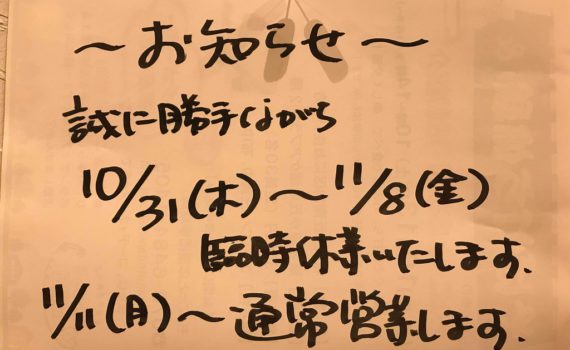 ～お知らせ～
誠に勝手ながら
10/31(木)～11/8(金)
臨時休業いたします.
11/11(月)～通常営業します.